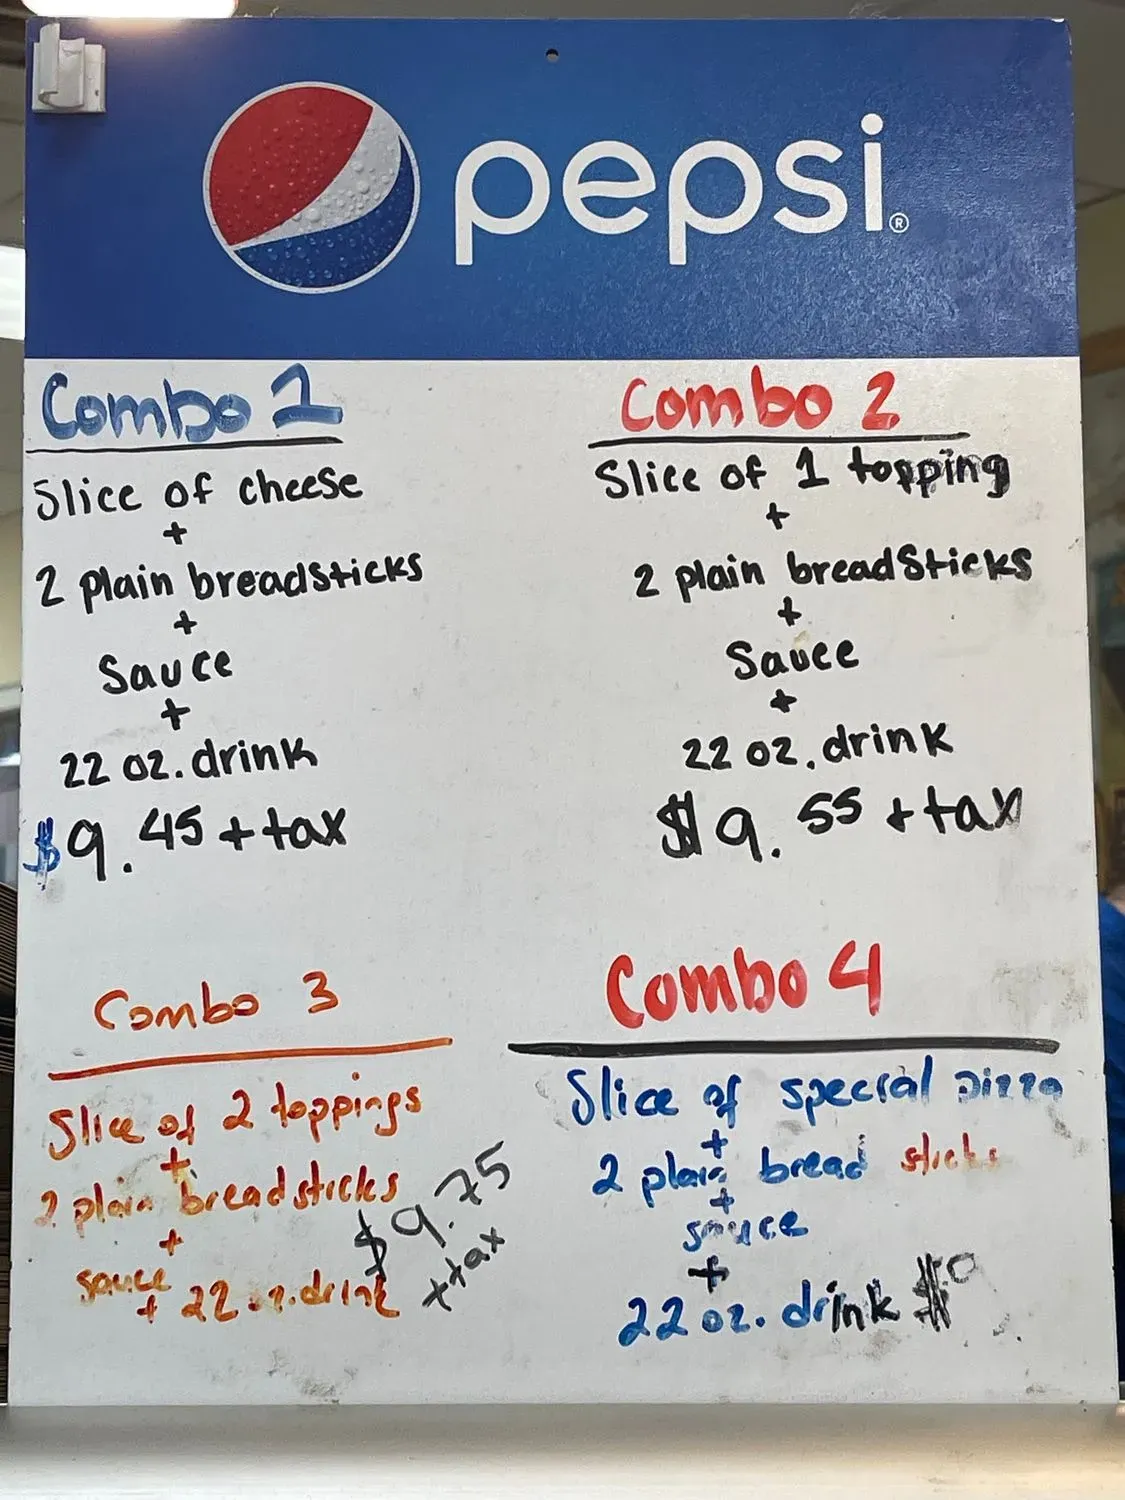 pepsi®
Combo 1
Slice of cheese
+
2 plain breadsticks
+
Sauce
+
22 oz. drink
$9.45 + tax
Combo 2
Slice of 1 topping
+
2 plain breadsticks
+
Sauce
+
22 oz. drink
$9.55 + tax
Combo 3
Slice of 2 toppings
+
2 plain breadsticks
+
sauce
+ 22 oz. drink
$9.75
+tax
Combo 4
Slice of special pizza
+
2 plain bread sticks
+
sauce
+
22 oz. drink $